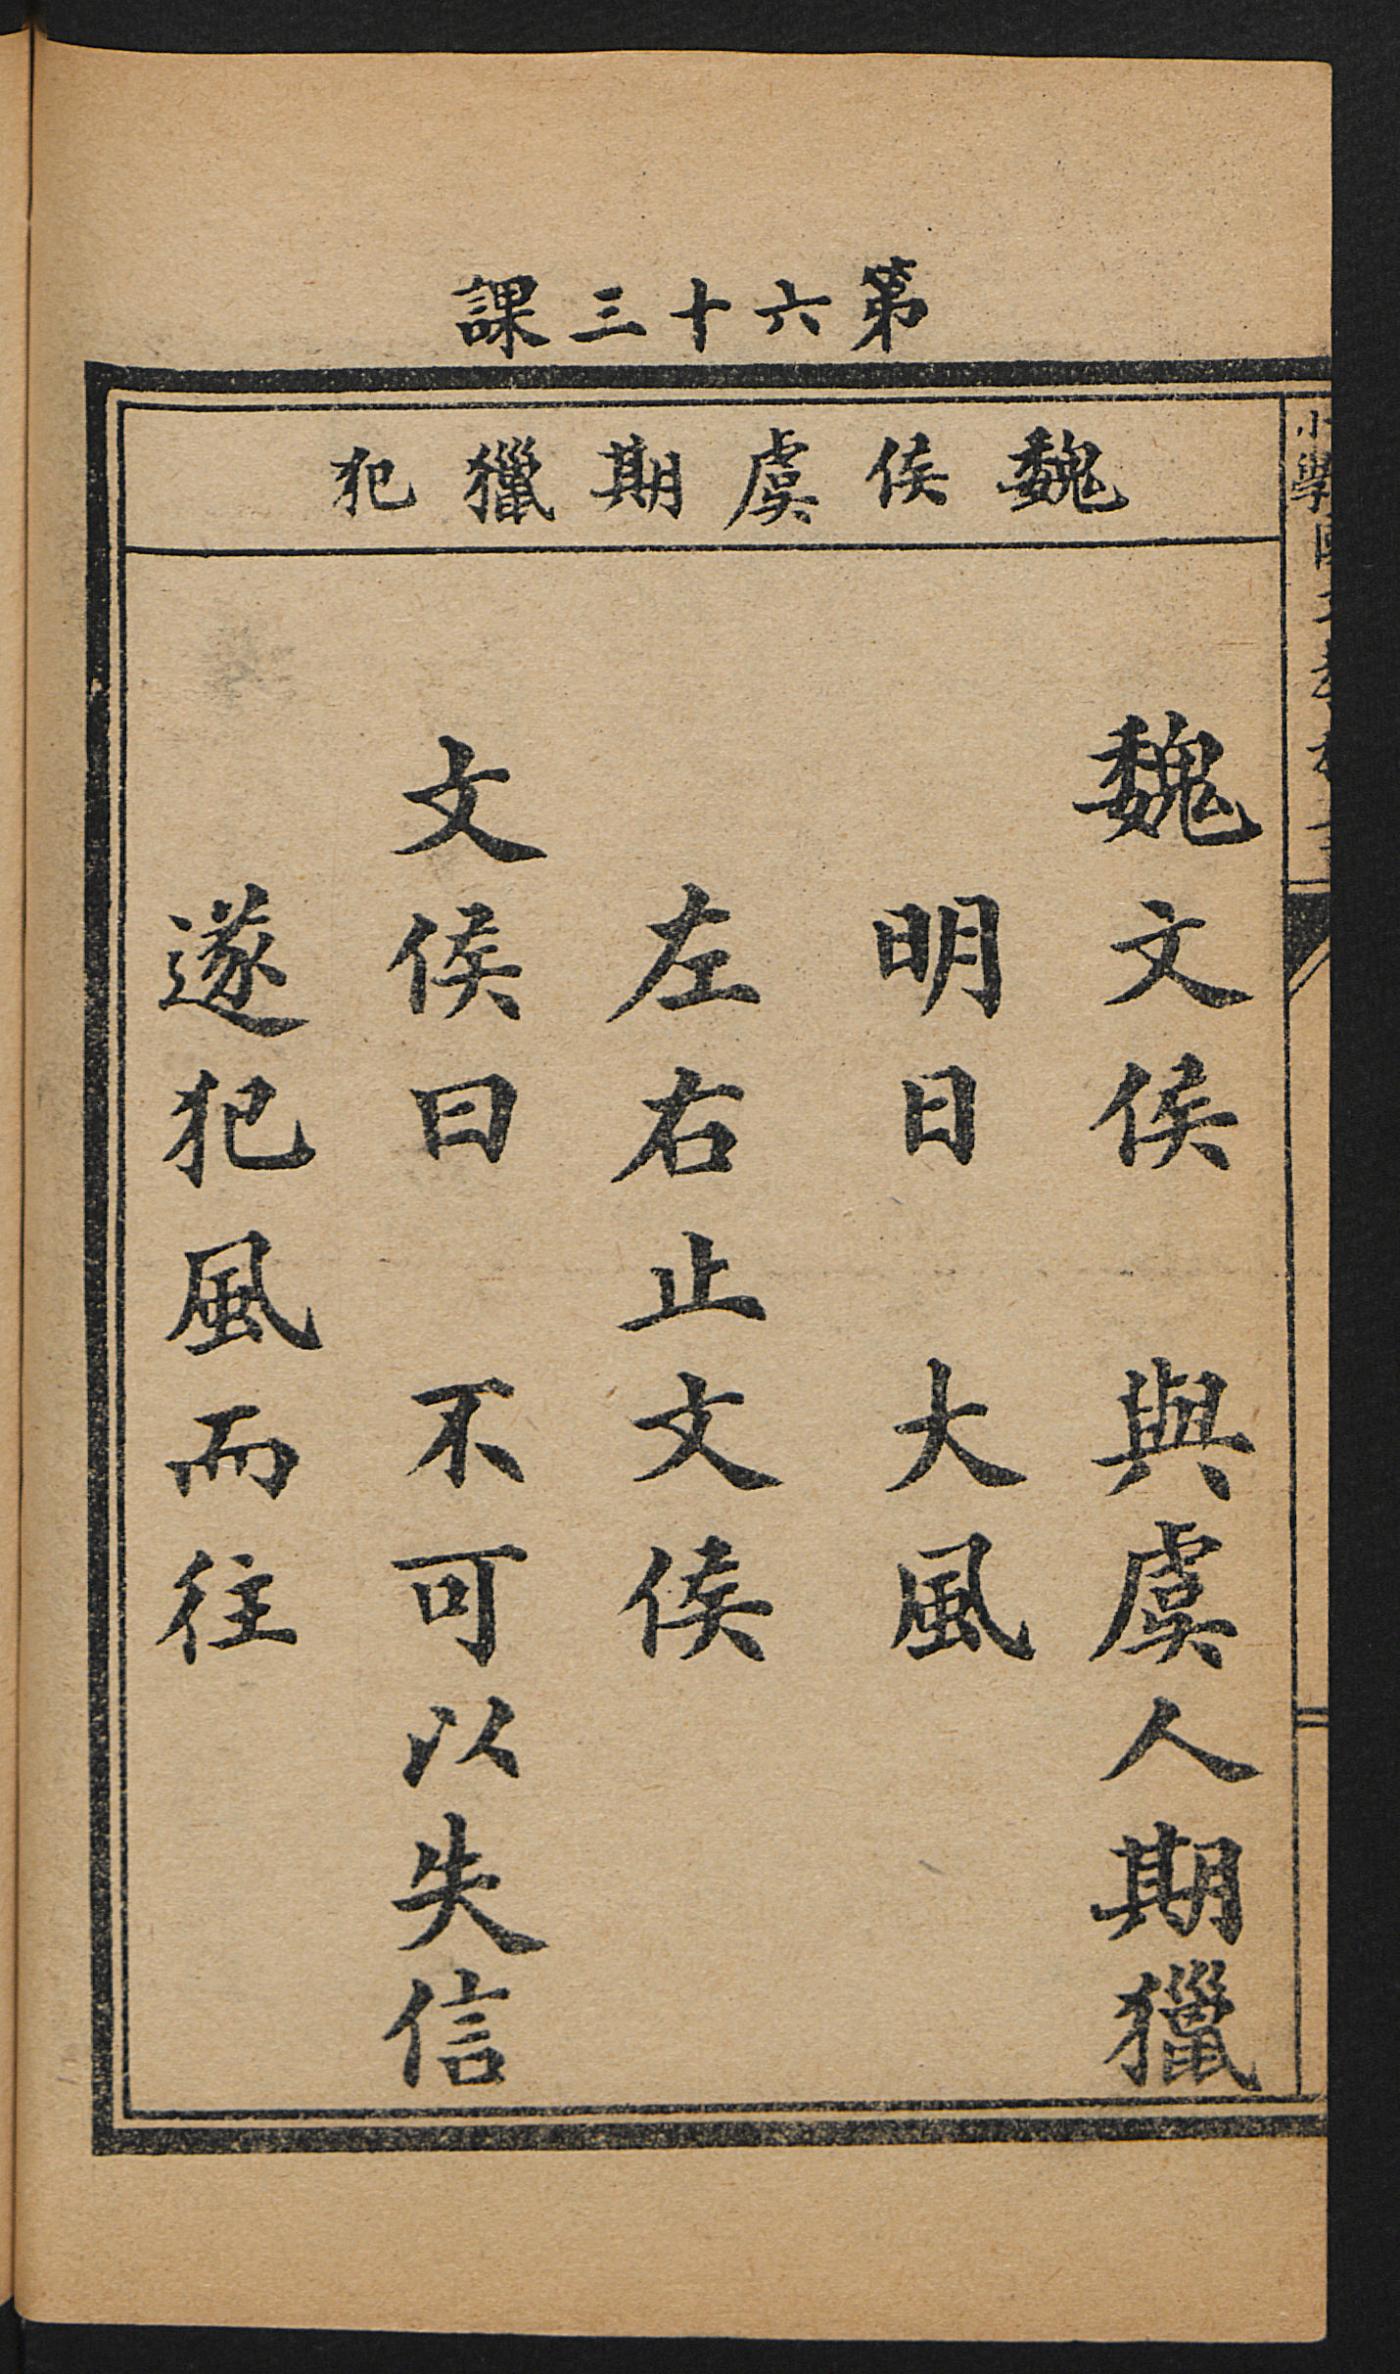 第六十三課
魏侯虞期獵犯
魏文侯　與虞人期獵
明日　大風
左右止文侯
文侯曰　不可以失信
遂犯風而往
小學